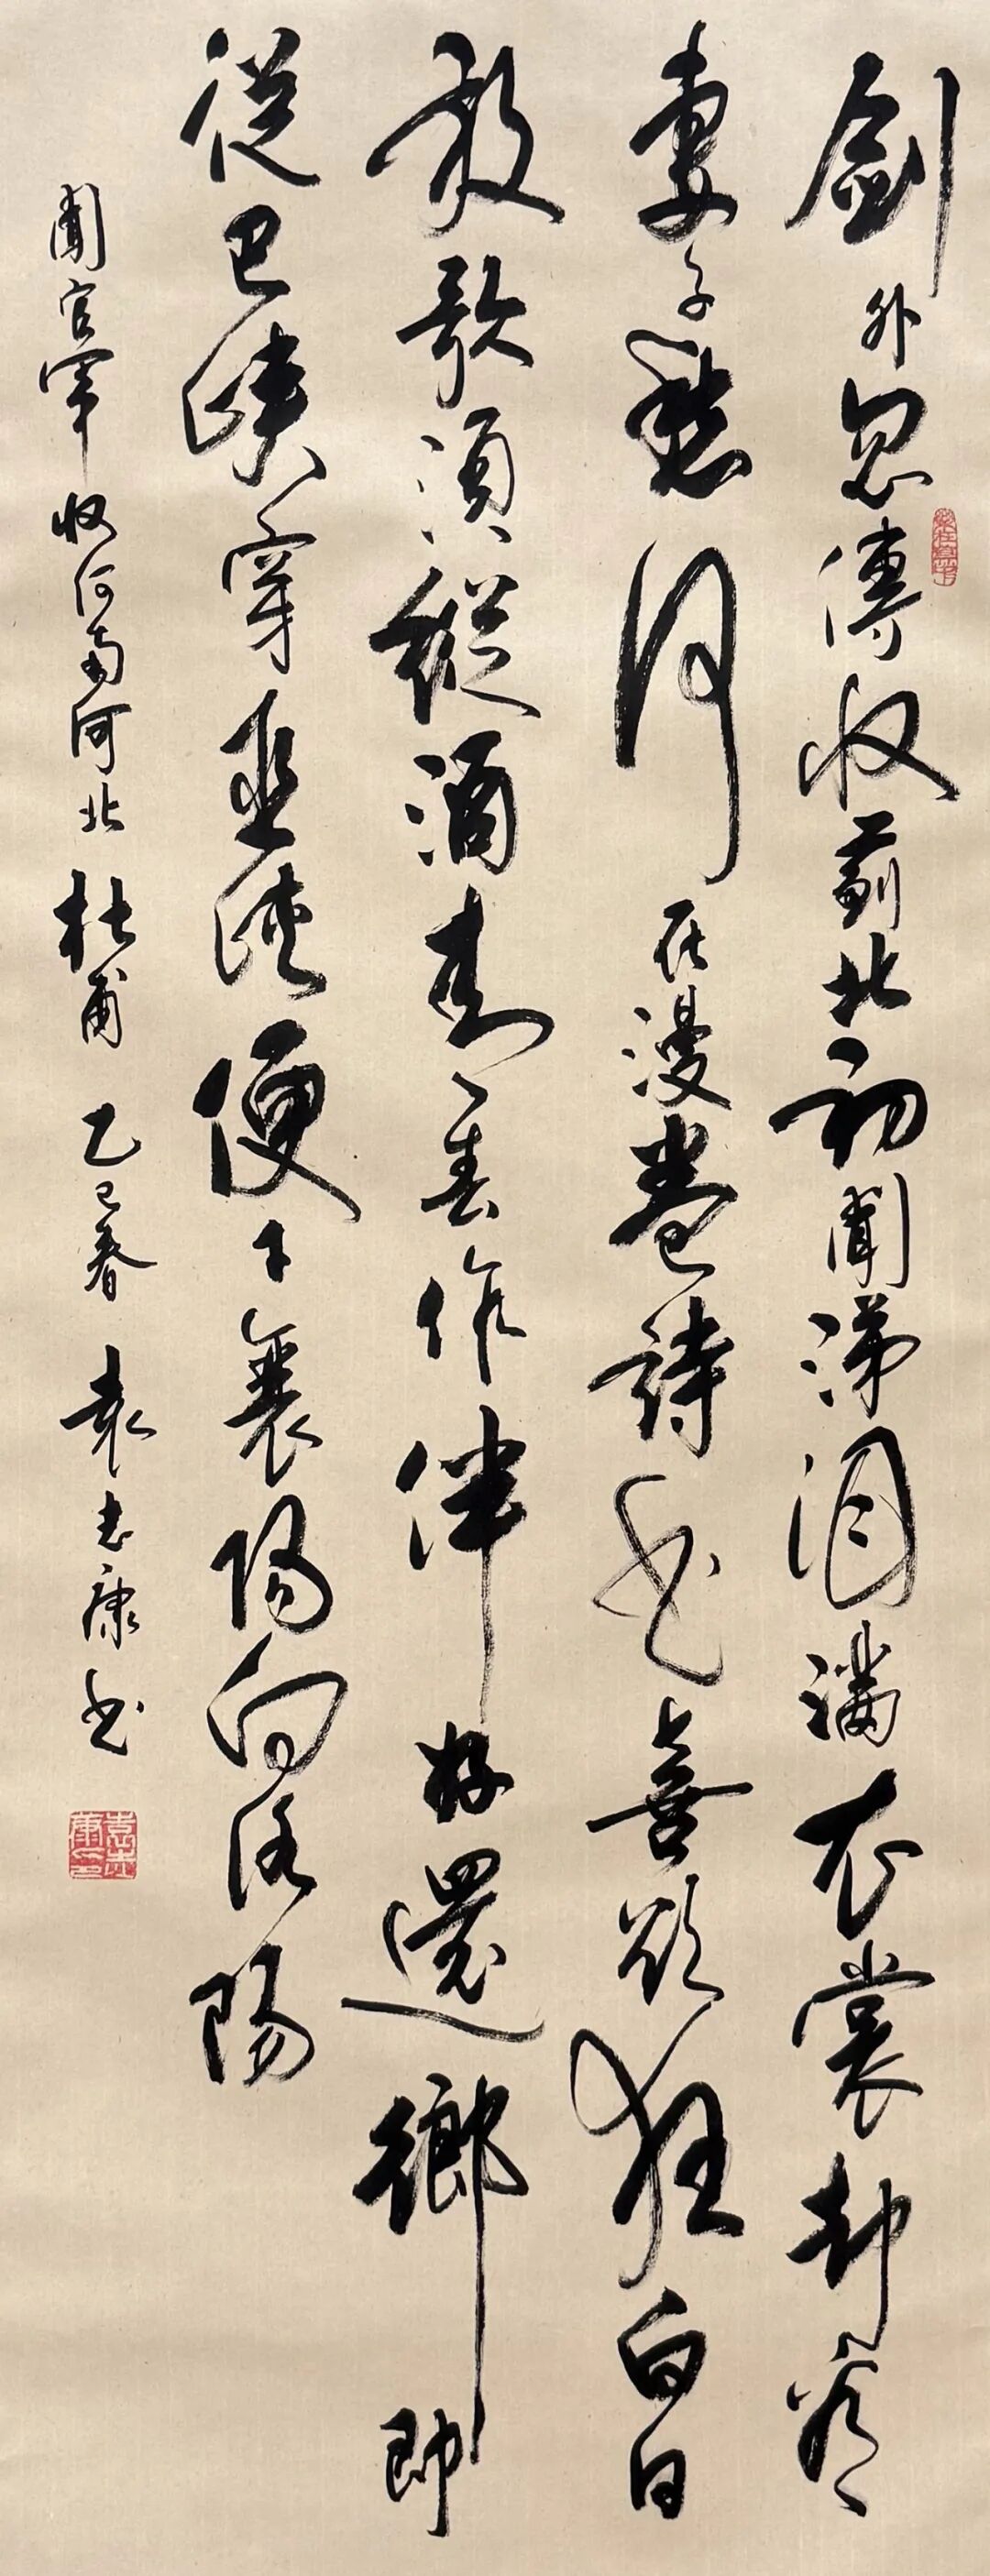 劍外忽傳收薊北初聞涕泪滿衣裳却看
妻子愁何在漫卷詩書喜欲狂白日
放歌須縱酒青春作伴好還鄉即
從巴峽穿巫峽便下襄陽向洛陽
聞官軍收河南河北 杜甫 乙巳春 袁志康書
袁志康印